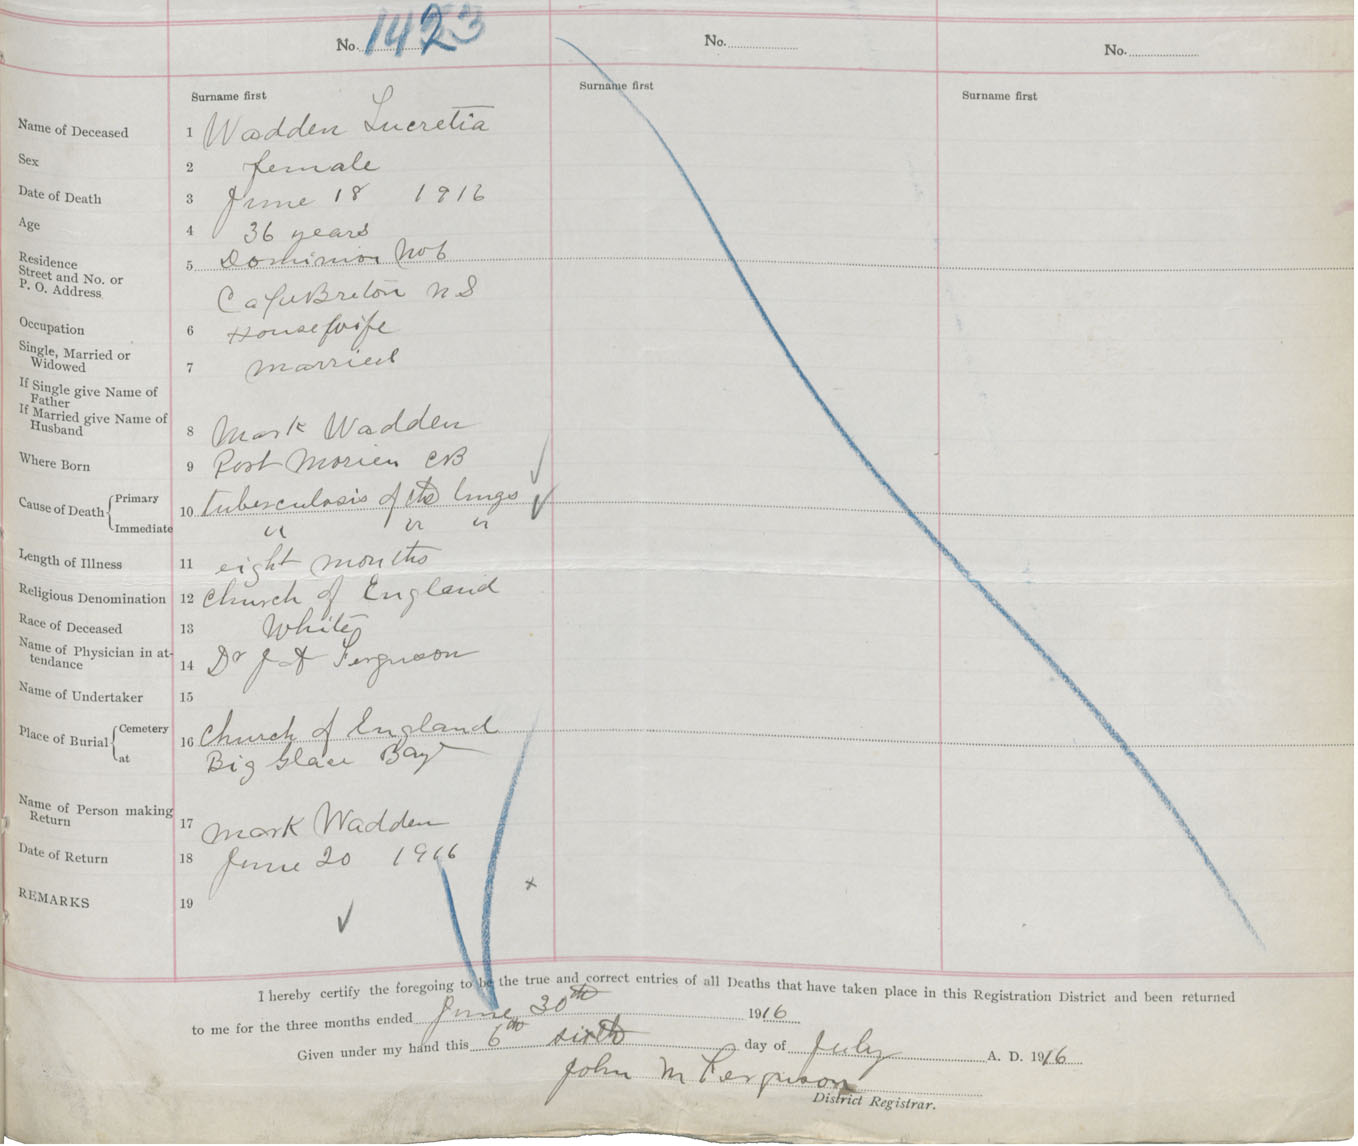 No. 1423
No.
No.
Surname first
Surname first
Surname first
Name of Deceased 1 Wadden Lucretia
Sex 2 female
Date of Death 3 June 18 1916
Age 4 36 years
Residence
Street and No. or
P. O. Address
5 Dominion No 6
Cape Breton N S
Occupation 6 Housewife
Single, Married or
Widowed
7 married
If Single give Name of
Father
If Married give Name of
Husband
8 Mark Wadden
Where Born 9 Port Morien CB
Cause of Death Primary 10 tuberculosis of the lungs
Immediate " " "
Length of Illness 11 eight months
Religious Denomination 12 Church of England
Race of Deceased 13 White
Name of Physician in at-
tendance
14 Dr J A Ferguson
Name of Undertaker 15
Place of Burial Cemetery 16 Church of England
at Big Glace Bay
Name of Person making
Return
17 Mark Wadden
Date of Return 18 June 20 1916
REMARKS 19
I hereby certify the foregoing to be the true and correct entries of all Deaths that have taken place in this Registration District and been returned
to me for the three months ended June 30th 1916
Given under my hand this 6th sixth day of July A. D. 1916
John M Ferguson
District Registrar.